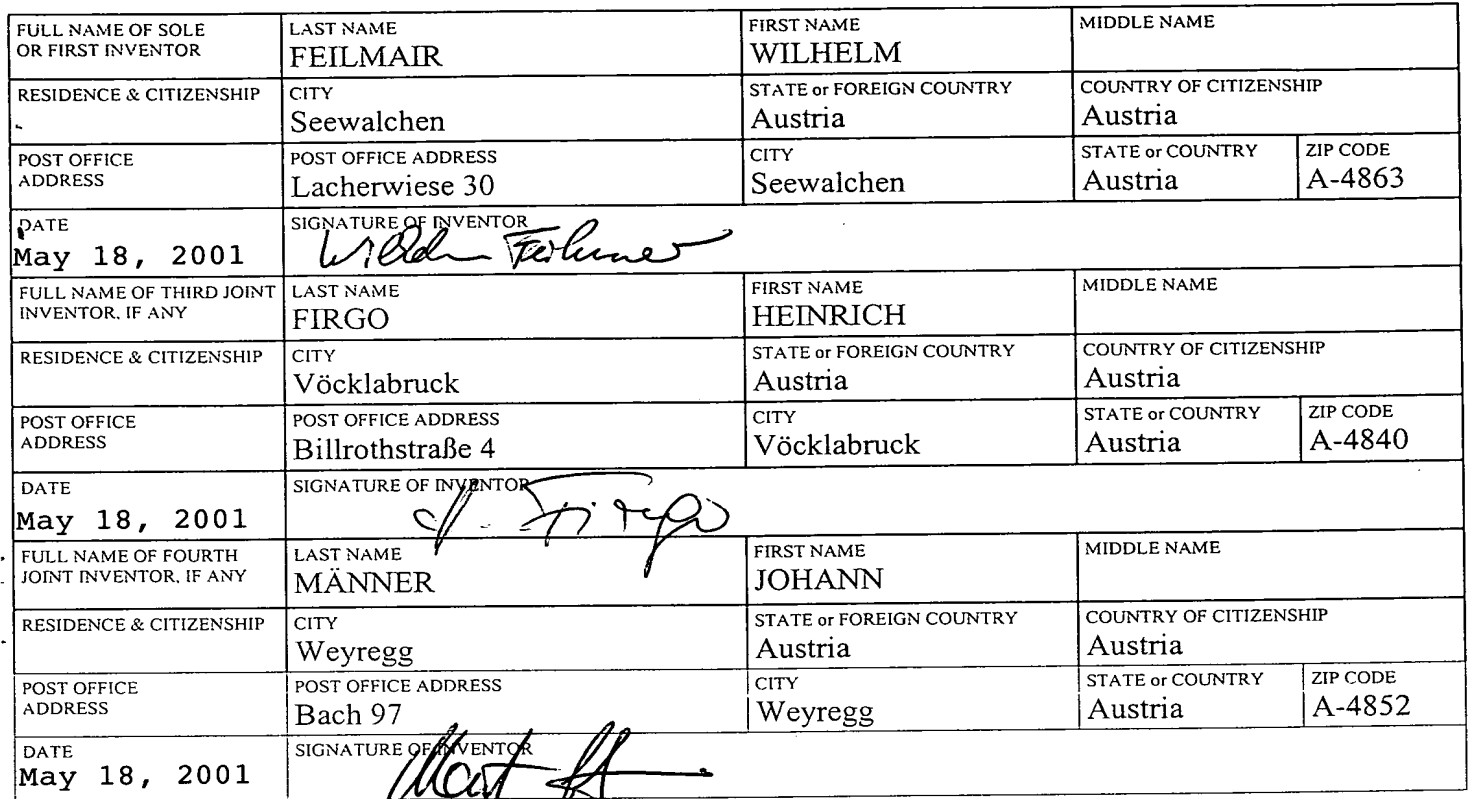 FULL NAME OF SOLE OR FIRST INVENTOR LAST NAME FEILMAIR FIRST NAME WILHELM MIDDLE NAME
RESIDENCE & CITIZENSHIP CITY Seewalchen STATE or FOREIGN COUNTRY Austria COUNTRY OF CITIZENSHIP Austria
POST OFFICE ADDRESS POST OFFICE ADDRESS Lacherwiese 30 CITY Seewalchen STATE or COUNTRY Austria ZIP CODE A-4863
DATE May 18, 2001 SIGNATURE OF INVENTOR
FULL NAME OF THIRD JOINT INVENTOR, IF ANY LAST NAME FIRGO FIRST NAME HEINRICH MIDDLE NAME
RESIDENCE & CITIZENSHIP CITY Vöcklabruck STATE or FOREIGN COUNTRY Austria COUNTRY OF CITIZENSHIP Austria
POST OFFICE ADDRESS POST OFFICE ADDRESS Billrothstraße 4 CITY Vöcklabruck STATE or COUNTRY Austria ZIP CODE A-4840
DATE May 18, 2001 SIGNATURE OF INVENTOR H. Firgo
FULL NAME OF FOURTH JOINT INVENTOR, IF ANY LAST NAME MÄNNER FIRST NAME JOHANN MIDDLE NAME
RESIDENCE & CITIZENSHIP CITY Weyregg STATE or FOREIGN COUNTRY Austria COUNTRY OF CITIZENSHIP Austria
POST OFFICE ADDRESS POST OFFICE ADDRESS Bach 97 CITY Weyregg STATE or COUNTRY Austria ZIP CODE A-4852
DATE May 18, 2001 SIGNATURE OF INVENTOR